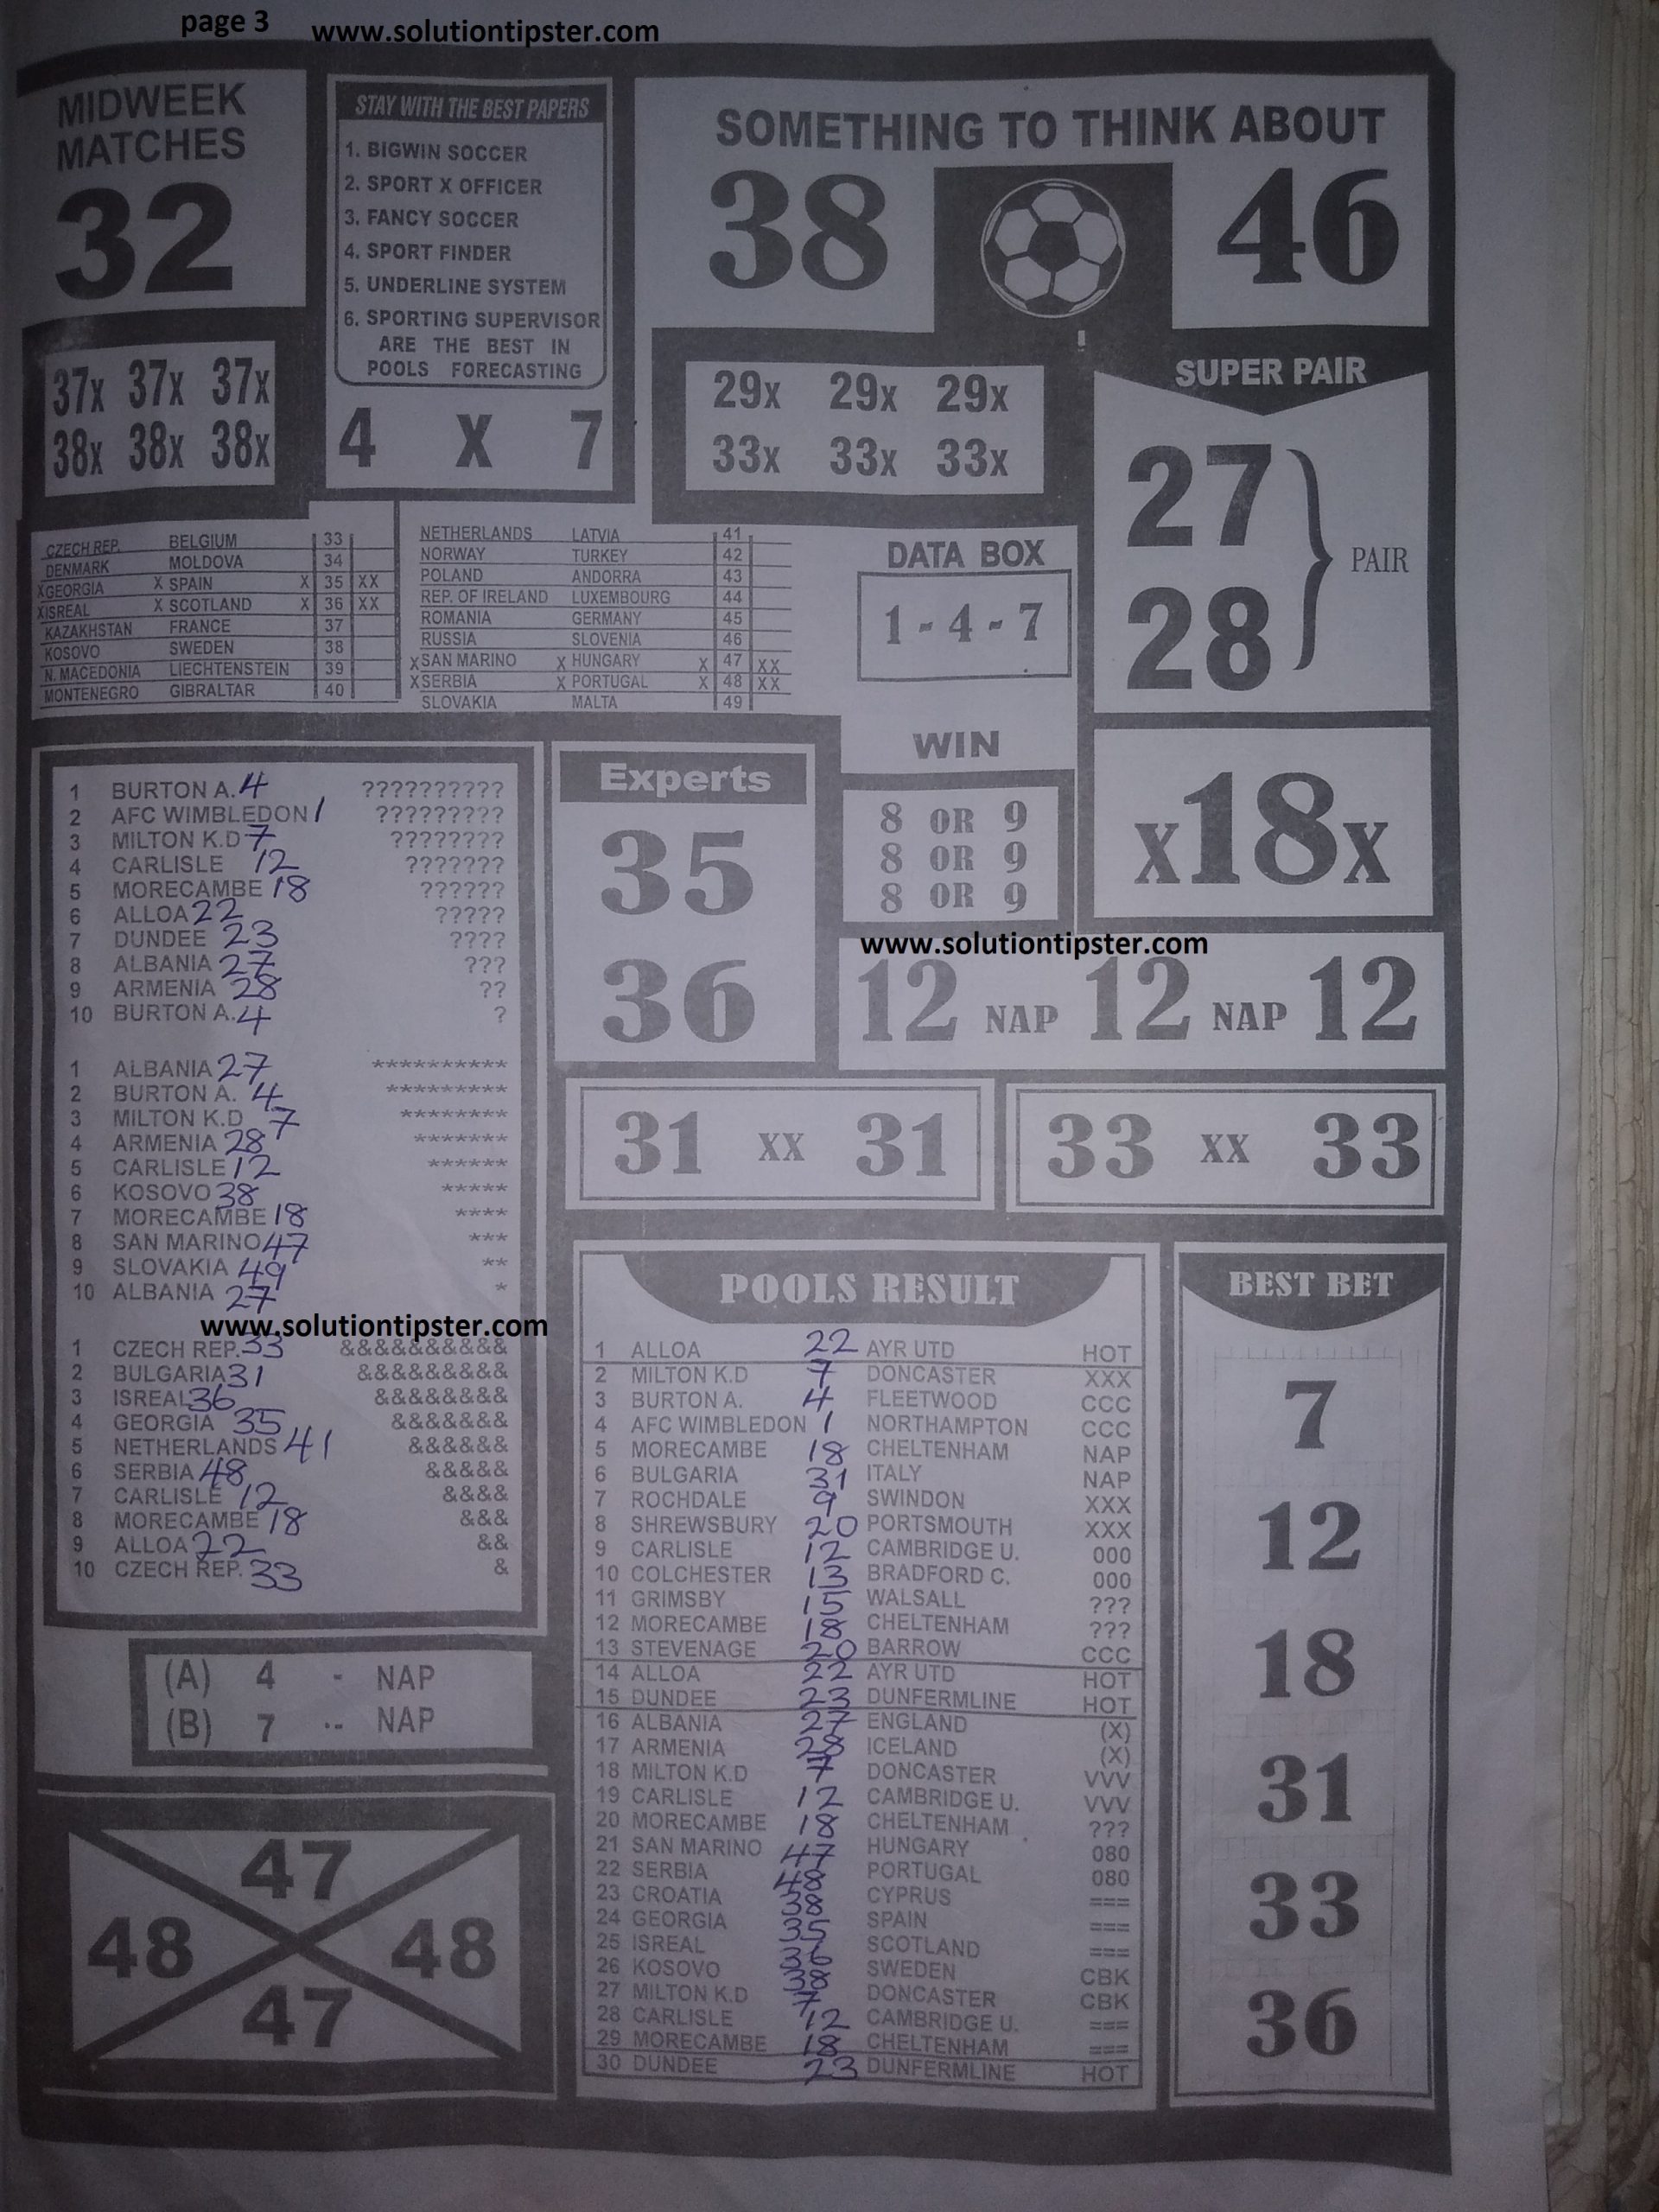 page 3 www.solutiontipster.com
MIDWEEK
MATCHES
32
STAY WITH THE BEST PAPERS
1. BIGWIN SOCCER
2. SPORT X OFFICER
3. FANCY SOCCER
4. SPORT FINDER
5. UNDERLINE SYSTEM
6. SPORTING SUPERVISOR
ARE THE BEST IN
POOLS FORECASTING
4 X 7
SOMETHING TO THINK ABOUT
38 46
37x 37x 37x
38x 38x 38x
29x 29x 29x
33x 33x 33x
SUPER PAIR
27
28
PAIR
CZECH REP. BELGIUM 33
DENMARK MOLDOVA 34
X GEORGIA X SPAIN X 35 XX
X ISREAL X SCOTLAND X 36 XX
KAZAKHSTAN FRANCE 37
KOSOVO SWEDEN 38
N. MACEDONIA LIECHTENSTEIN 39
MONTENEGRO GIBRALTAR 40
NETHERLANDS LATVIA 41
NORWAY TURKEY 42
POLAND ANDORRA 43
REP. OF IRELAND LUXEMBOURG 44
ROMANIA GERMANY 45
RUSSIA SLOVENIA 46
X SAN MARINO X HUNGARY X 47 XX
X SERBIA X PORTUGAL X 48 XX
SLOVAKIA MALTA 49
DATA BOX
1 - 4 - 7
WIN
8 OR 9
8 OR 9
8 OR 9
x18x
1 BURTON A. 4 ??????????
2 AFC WIMBLEDON 1 ?????????
3 MILTON K.D 7 ????????
4 CARLISLE 12 ???????
5 MORECAMBE 18 ??????
6 ALLOA 22 ?????
7 DUNDEE 23 ????
8 ALBANIA 27 ???
9 ARMENIA 28 ??
10 BURTON A. 4 ?
1 ALBANIA 27 **********
2 BURTON A. 4 *********
3 MILTON K.D 7 ********
4 ARMENIA 28 *******
5 CARLISLE 12 ******
6 KOSOVO 38 *****
7 MORECAMBE 18 ****
8 SAN MARINO 47 ***
9 SLOVAKIA 49 **
10 ALBANIA 27 *
www.solutiontipster.com
1 CZECH REP. 33 &&&&&&&&&&
2 BULGARIA 31 &&&&&&&&&
3 ISREAL 36 &&&&&&&&
4 GEORGIA 35 &&&&&&&
5 NETHERLANDS 41 &&&&&&
6 SERBIA 48 &&&&&
7 CARLISLE 12 &&&&
8 MORECAMBE 18 &&&
9 ALLOA 22 &&
10 CZECH REP. 33 &
Experts
35
36
www.solutiontipster.com
12 NAP 12 NAP 12
31 XX 31
33 XX 33
(A) 4 - NAP
(B) 7 -- NAP
47
48 48
47
POOLS RESULT
1 ALLOA 22 AYR UTD HOT
2 MILTON K.D 7 DONCASTER XXX
3 BURTON A. 4 FLEETWOOD CCC
4 AFC WIMBLEDON 1 NORTHAMPTON CCC
5 MORECAMBE 18 CHELTENHAM NAP
6 BULGARIA 31 ITALY NAP
7 ROCHDALE 9 SWINDON XXX
8 SHREWSBURY 20 PORTSMOUTH XXX
9 CARLISLE 12 CAMBRIDGE U. 000
10 COLCHESTER 13 BRADFORD C. 000
11 GRIMSBY 15 WALSALL ???
12 MORECAMBE 18 CHELTENHAM ???
13 STEVENAGE 20 BARROW CCC
14 ALLOA 22 AYR UTD HOT
15 DUNDEE 23 DUNFERMLINE HOT
16 ALBANIA 27 ENGLAND (X)
17 ARMENIA 28 ICELAND (X)
18 MILTON K.D 7 DONCASTER VVV
19 CARLISLE 12 CAMBRIDGE U. VVV
20 MORECAMBE 18 CHELTENHAM ???
21 SAN MARINO 47 HUNGARY 080
22 SERBIA 48 PORTUGAL 080
23 CROATIA 38 CYPRUS ===
24 GEORGIA 35 SPAIN ===
25 ISREAL 36 SCOTLAND ===
26 KOSOVO 38 SWEDEN CBK
27 MILTON K.D 7 DONCASTER CBK
28 CARLISLE 12 CAMBRIDGE U. ===
29 MORECAMBE 18 CHELTENHAM ===
30 DUNDEE 23 DUNFERMLINE HOT
BEST BET
7
12
18
31
33
36